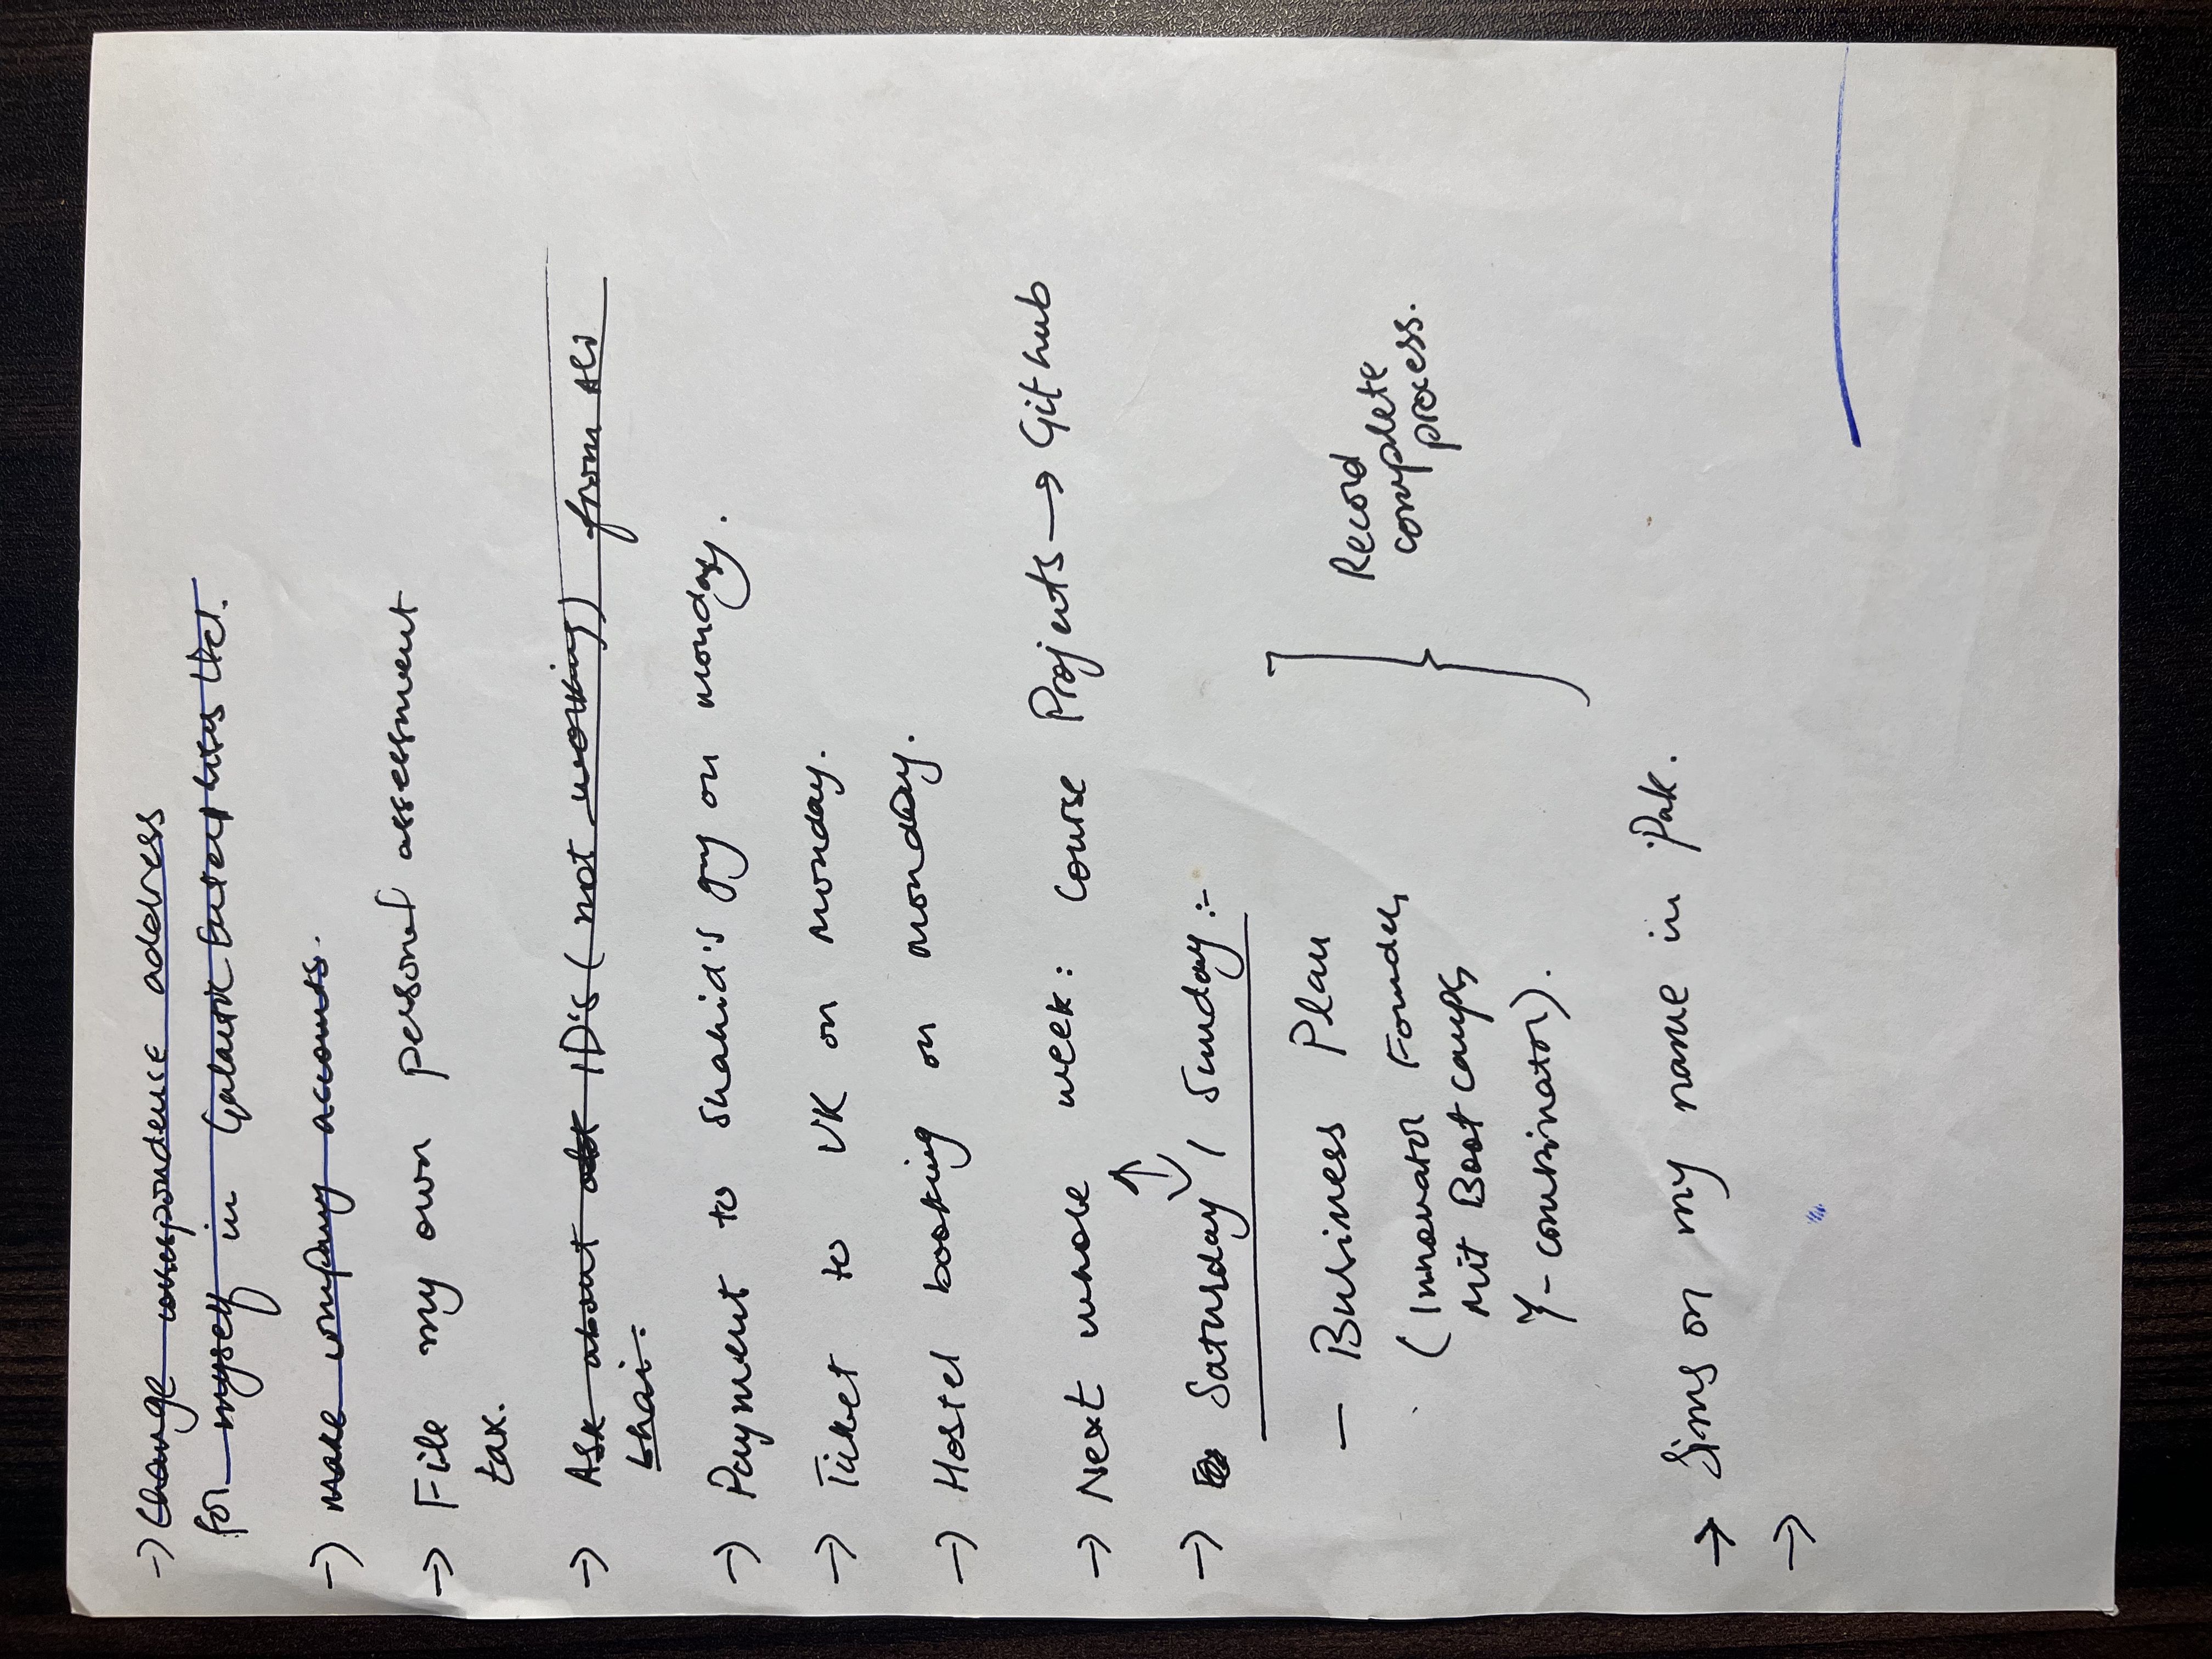 → Change correspondense address
for myself in Galactic Enterprises Ltd.
→ make company accounts.
→ File my own personal assessment
tax.
→ Ask about ID's (not working) from Ali
bhai.
→ Payment to Shahid's on monday.
→ Ticket to UK on monday.
→ Hostel booking on monday.
→ Next whole week: Course Projects → Github
→ Saturday / Sunday:-
— Business Plan
(Innovator Founder,
Mit Bootcamps,
Y-combinator).
} Record
complete
process.
→ Sims on my name in Pak.
→